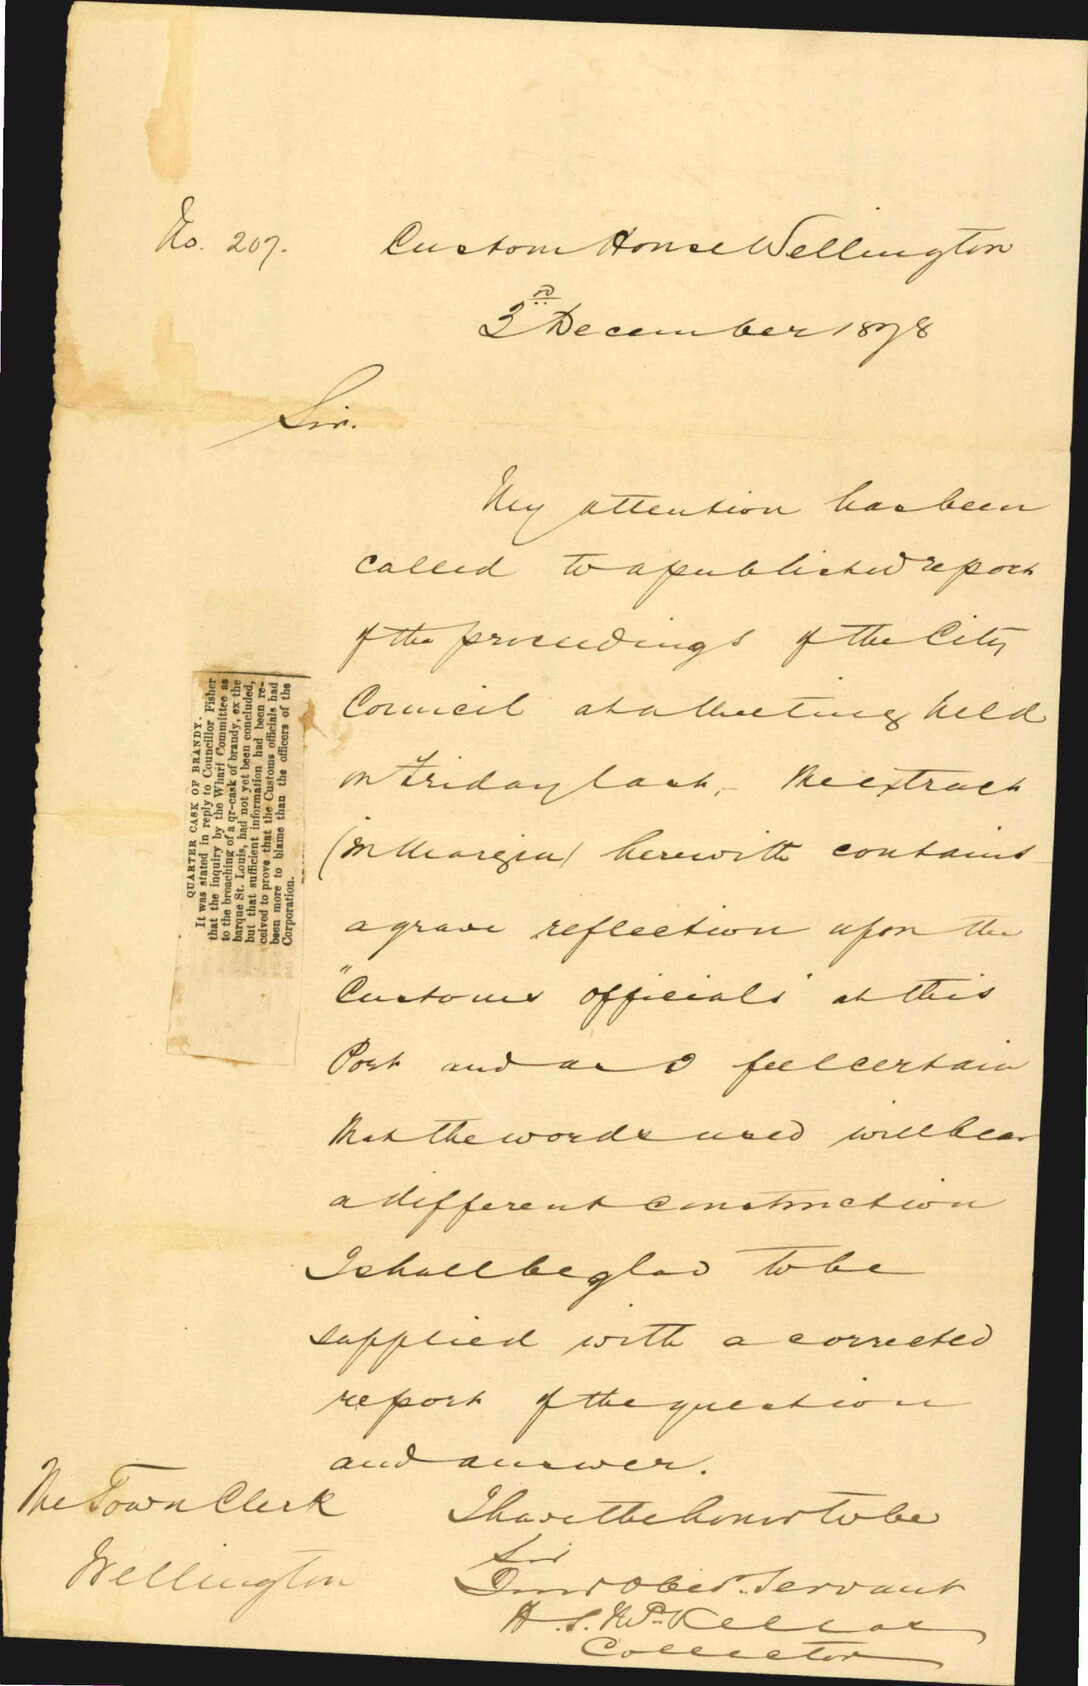 No. 207.
Custom House Wellington
3rd December 1878
Sir.
My attention has been
called to a published report
of the proceedings of the City
Council at a Meeting held
on Friday last, - The extract
(in Margin) herewith contains
a grave reflection upon the
"Customs officials" at this
Port and as I feel certain
that the words used will bear
a different construction
I shall be glad to be
supplied with a corrected
report of the question
and answer.
I have the honor to be
Sir
Your Obed. Servant
H. S. McKellar
Collector
The Town Clerk
Wellington
QUARTER CASK OF BRANDY.
It was stated in reply to Councillor Fisher
that the inquiry by the Wharf Committee as
to the broaching of a qr-cask of brandy, ex the
barque St. Louis, had not yet been concluded,
but that sufficient information had been re-
ceived to prove that the Customs officials had
been more to blame than the officers of the
Corporation.